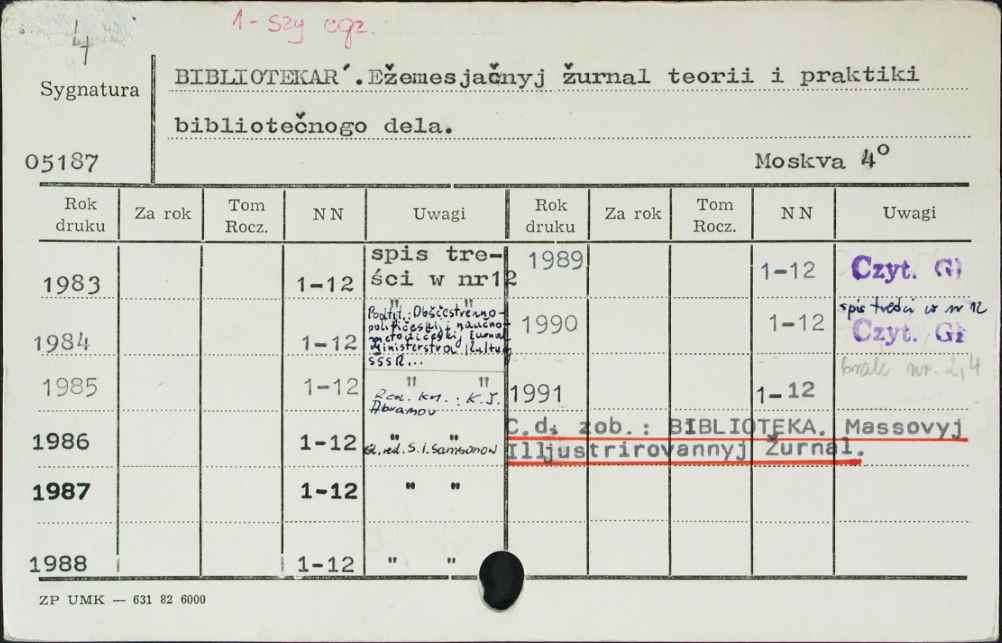 1-szy egz.
4
Sygnatura
BIBLIOTEKAR´.Ežemesjačnyj žurnal teorii i praktiki
bibliotečnogo dela.
05187
Moskva 4º
Rok druku Za rok Tom Rocz. NN Uwagi Rok druku Za rok Tom Rocz. NN Uwagi
1983 1-12 spis tre-
ści w nr12
1989 1-12 Czyt. Gł
1984 1-12 " "
Podtit.: Obščestvenno-
političeskij i naučno-
metodičeskij žurnal
Ministerstva Kultury
SSSR...
1990 1-12 spis treści w nr 12
Czyt. Gł
1985 1-12 " "
K.I.
Abramov
1991 1-12 Brak nr. 2,4
1986 1-12 " "
red. S.I. Samsonov
C.d. zob.: BIBLIOTEKA. Massovyj
Illjustrirovannyj Žurnal.
1987 1-12 " "
1988 1-12 " "
ZP UMK — 631 82 6000